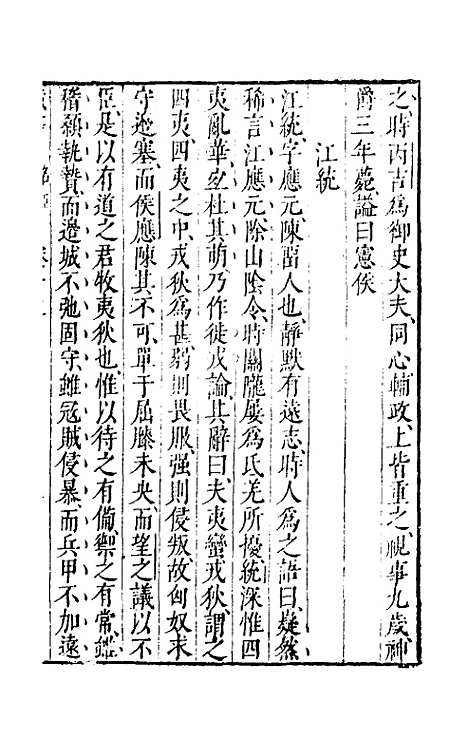 之時丙吉為御史大夫同心輔政上皆重之視事九歲神
爵三年薨謚曰憲侯
江統
江統字應元陳畱人也靜默有遠志時人為之語曰嶷然
稀言江應元除山陰令時關隴屢為氐羌所擾統深惟四
夷亂華宜杜其萌乃作徙戎論其辭曰夫夷蠻戎狄謂之
四夷四夷之中戎狄為甚弱則畏服强則侵叛故匈奴求
守邊塞而侯應陳其不可單于屈膝未央而望之議以不
臣是以有道之君牧夷狄也惟以待之有備禦之有常雖
稽顙執贄而邊城不弛固守雖冦賊侵暴而兵甲不加遠